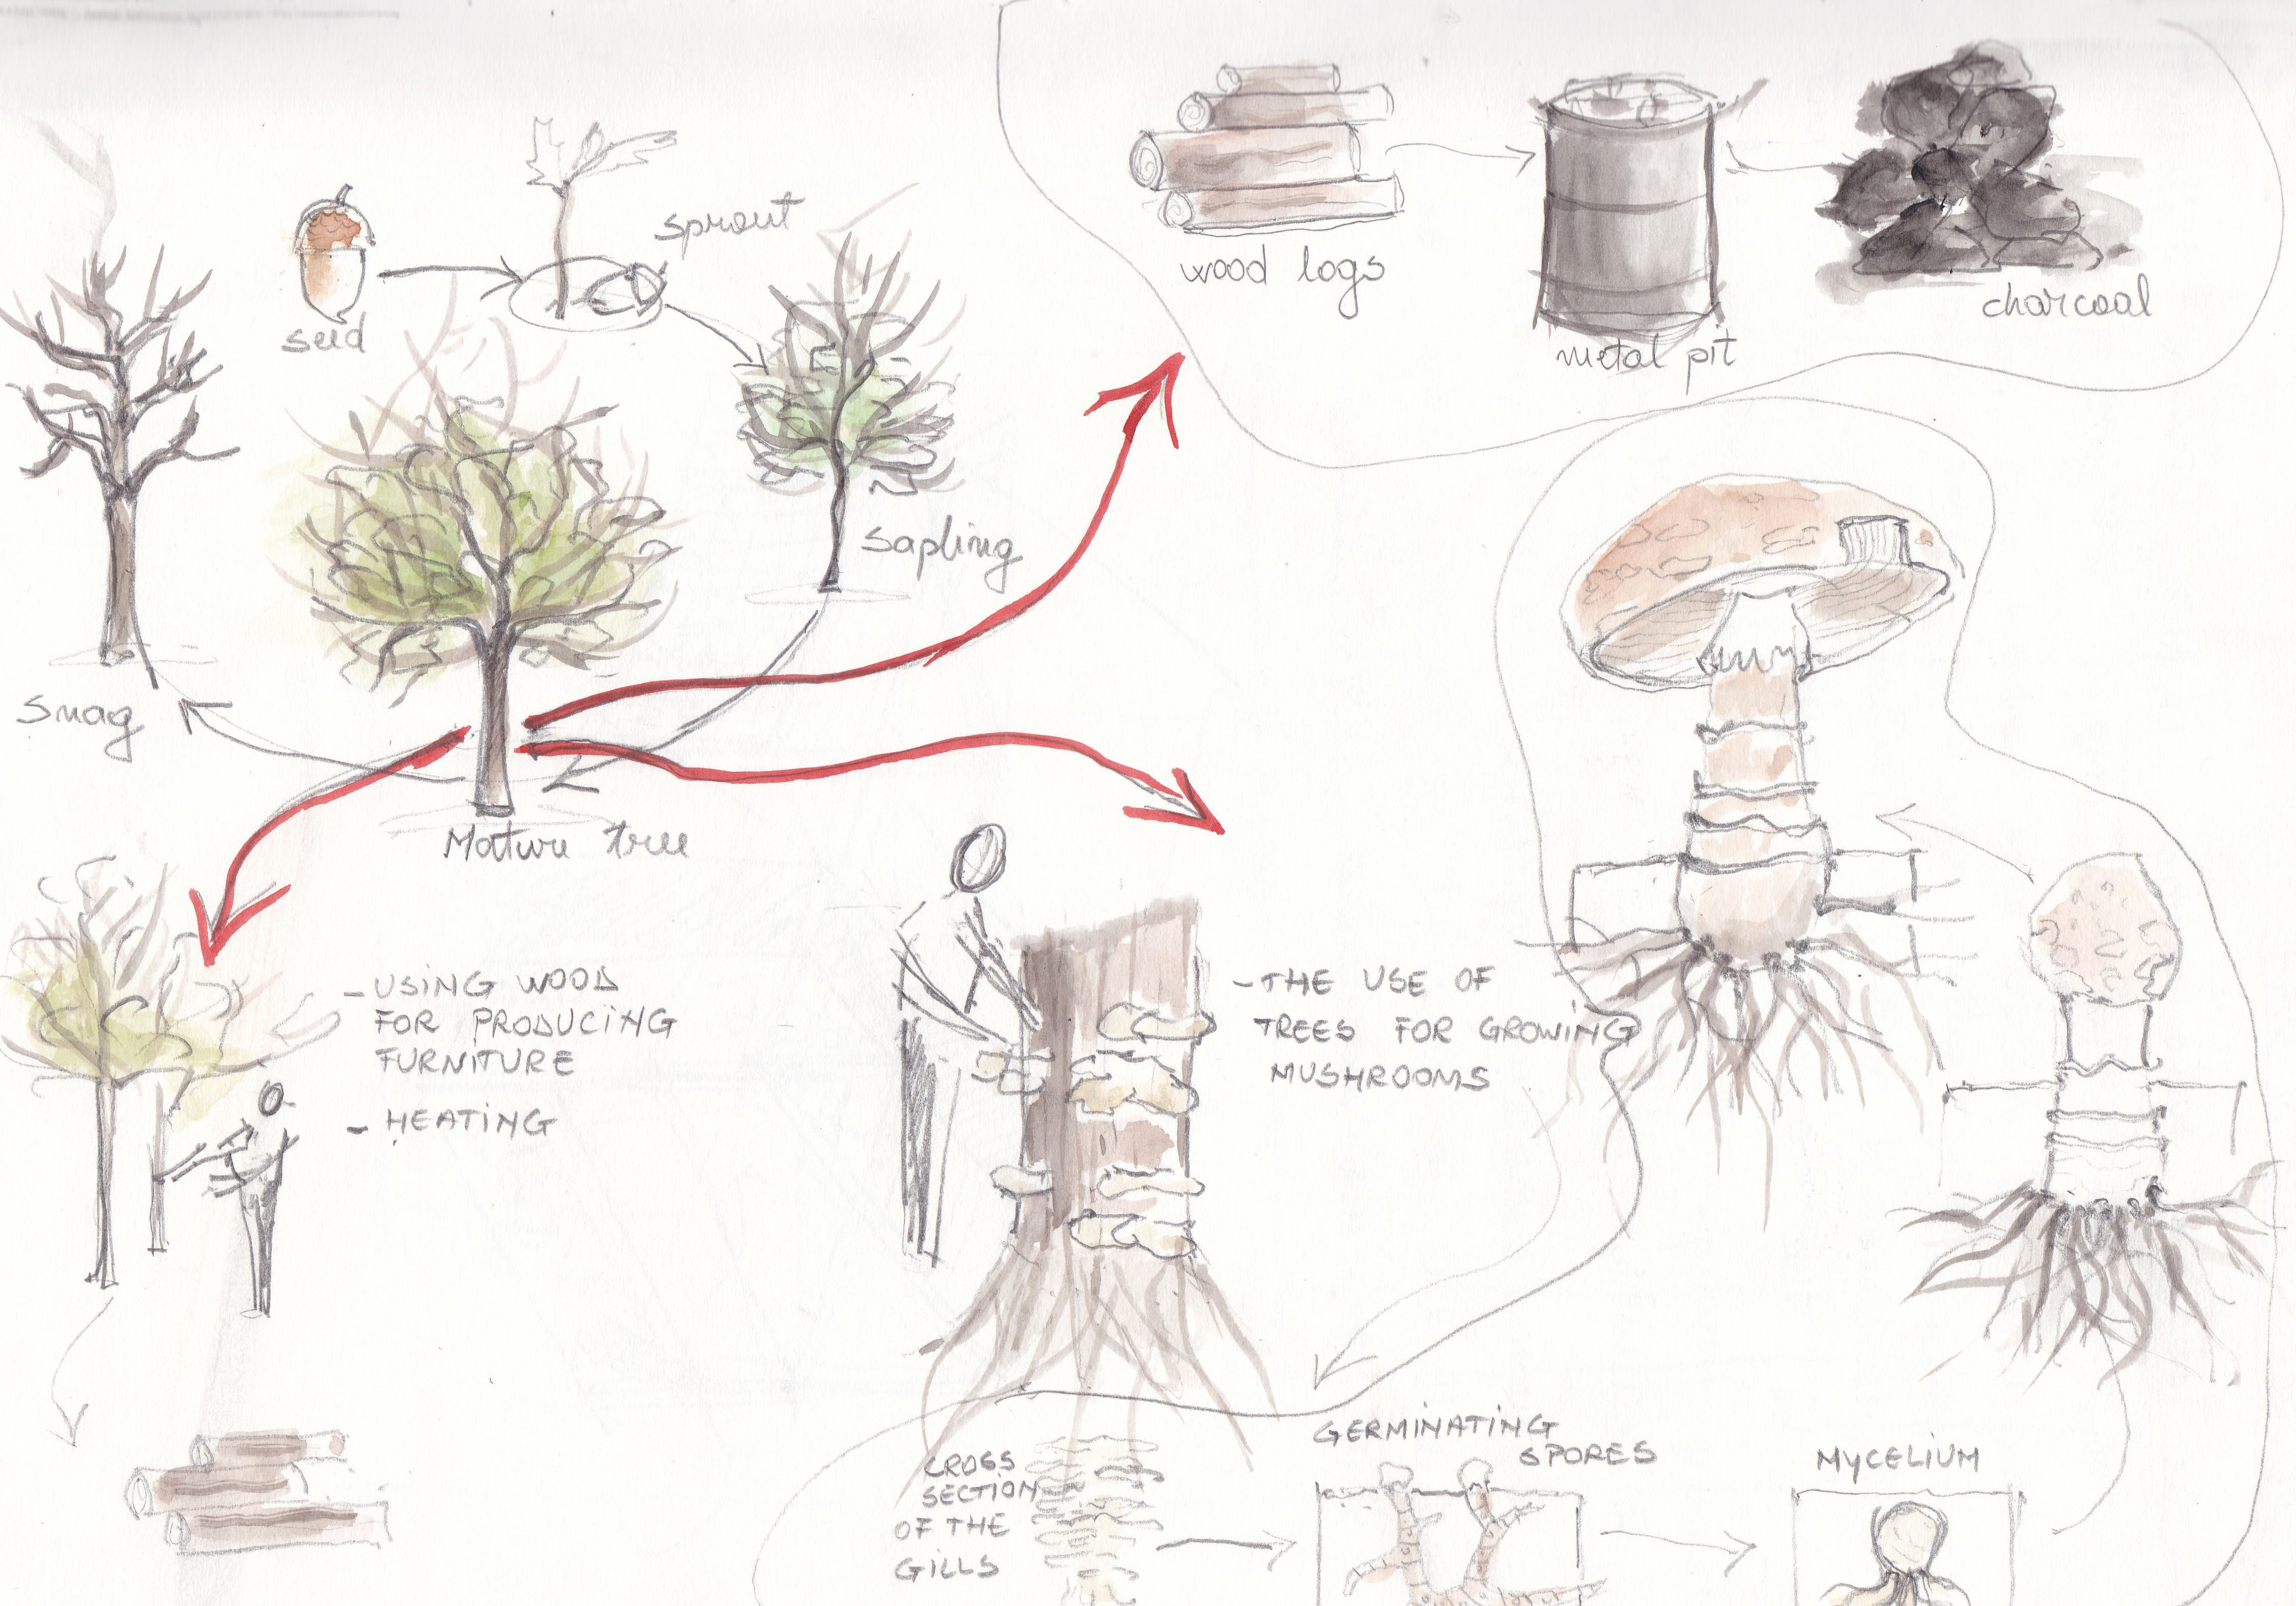 seed
sprout
sapling
Mature tree
snag
wood logs
metal pit
charcoal
- USING WOOD
FOR PRODUCING
FURNITURE
- HEATING
- THE USE OF
TREES FOR GROWING
MUSHROOMS
CROSS
SECTION
OF THE
GILLS
GERMINATING
SPORES
MYCELIUM